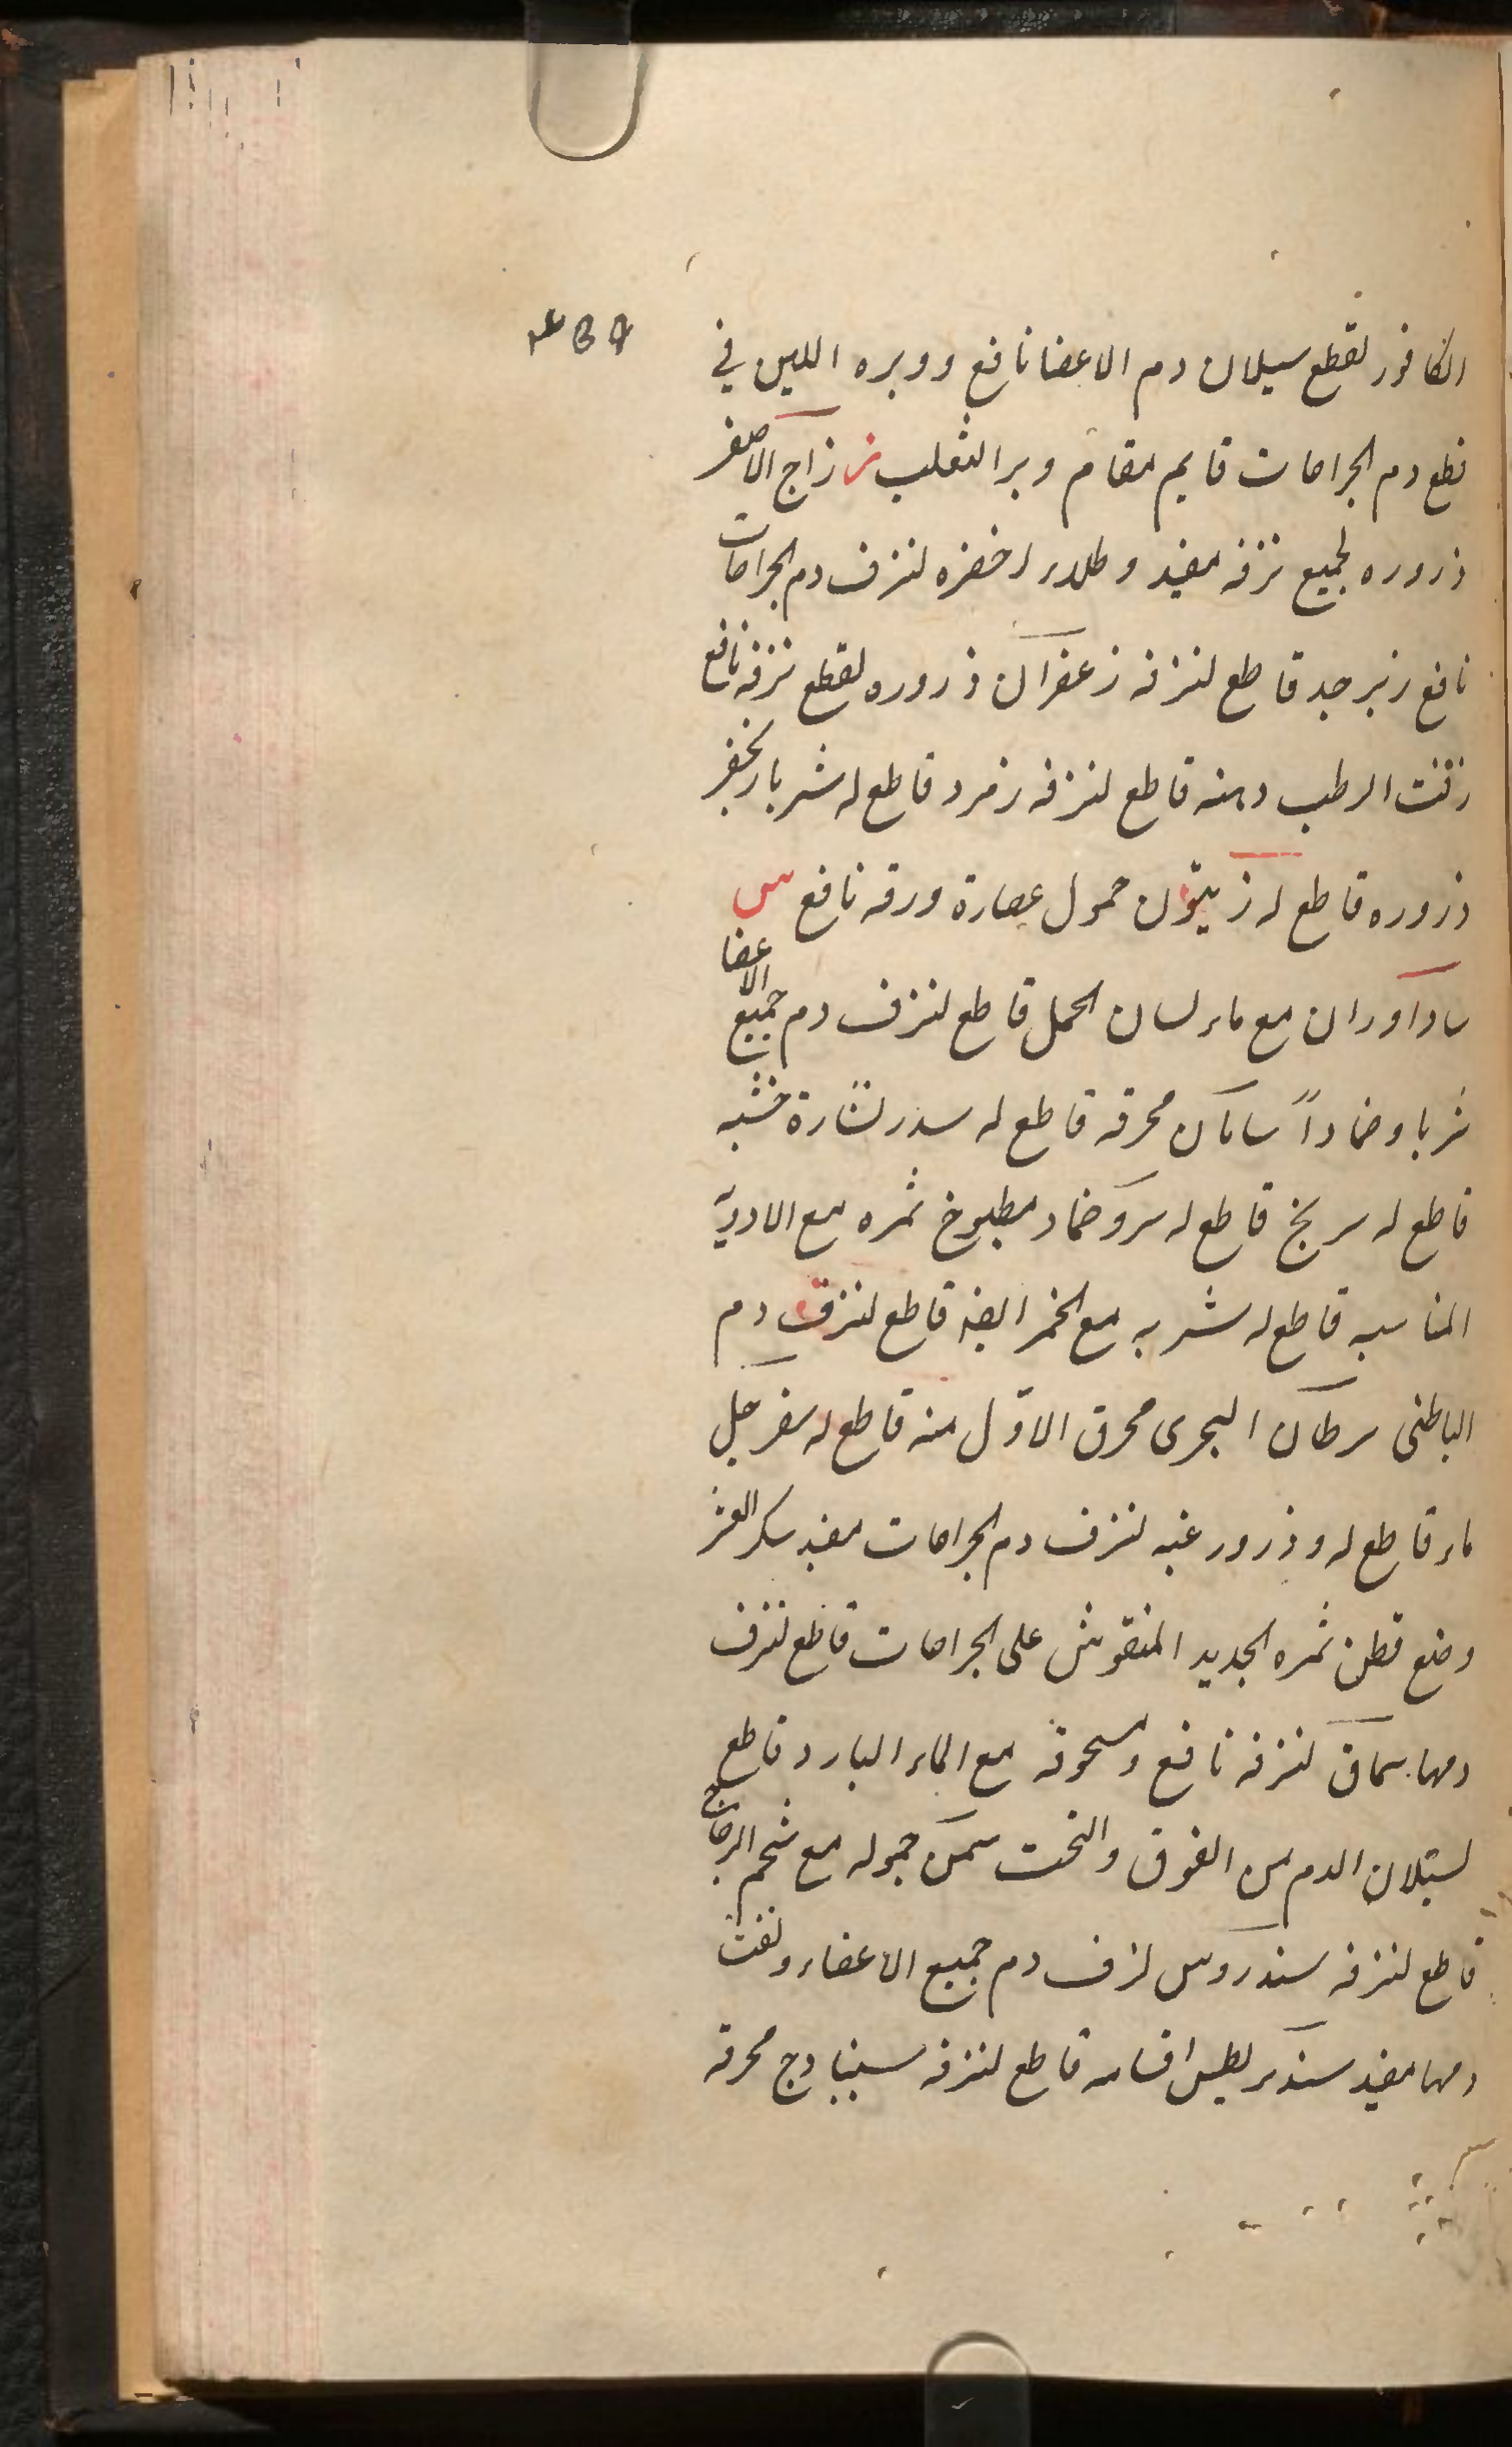 ٤٥٩
الكافور لقطع سيلان دم الاعضا نافع ووبره اللين في
قطع دم الجراحات قايم مقام وبر الثعلب ز زاج الاصفر
ذروره لجميع نزفه مفيد وطلاء اخضره لنزف دم الجراحات
نافع زبرجد قاطع لنزفه زعفران ذروره لقطع نزفه نافع
زفت الرطب دهنه قاطع لنزفه زمرد قاطع له شربا زنجفر
ذروره قاطع له زيتون حمول عصارة ورقه نافع س
ساداوران مع ماء لسان الحمل قاطع لنزف دم جميع الاعضا
شربا وضمادًا سامان محرقه قاطع له سدر نشارة خشبه
قاطع له سرنج قاطع له سرو ضماد مطبوخ ثمره مع الادوية
المناسبه قاطع له شربه مع الخمر ايضه قاطع لنزف دم
الباطنى سرطان البحرى محرق الاوّل منه قاطع له سفرجل
ماء قاطع له وذرور غبه لنزف دم الجراحات مفيد سكر العشر
وضع قطن ثمره الجديد المنقوش على الجراحات قاطع لنزف
دمها سماق لنزفه نافع ومسحوقه مع الماء البارد قاطع
لسيلان الدم من الفوق والتحت سمك حموله مع شحم الدجاج
قاطع لنزفه سندروس لنزف دم جميع الاعضاء ونفث
دمها مفيد سندريطس اقسامه قاطع لنزفه سنبادج محرقه